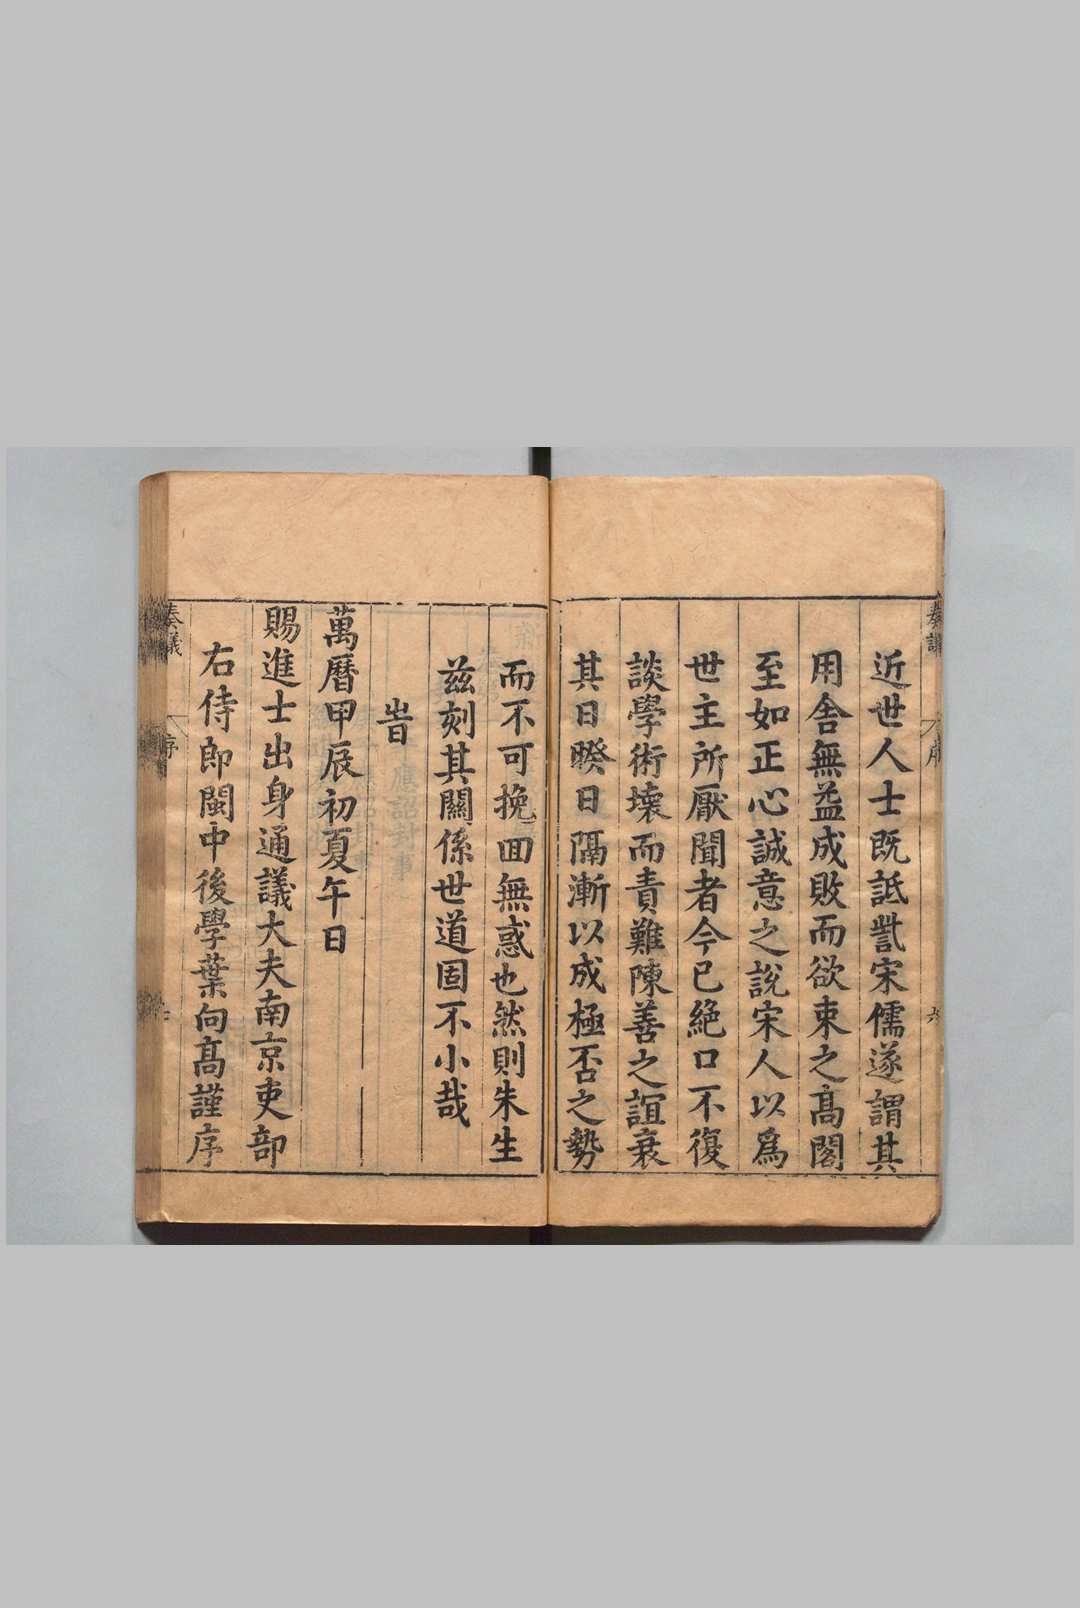 近世人士既詆訾宋儒遂謂其
用舍無益成敗而欲束之髙閣
至如正心誠意之說宋人以爲
世主所厭聞者今已絶口不復
談學術壞而責難陳善之誼衰
其日暌日隔漸以成極否之勢
而不可挽回無惑也然則朱生
兹刻其關係世道固不小哉
旹
萬曆甲辰初夏午日
賜進士出身通議大夫南京吏部
右侍郎閩中後學葉向髙謹序
奏議
序
六
奏議
序